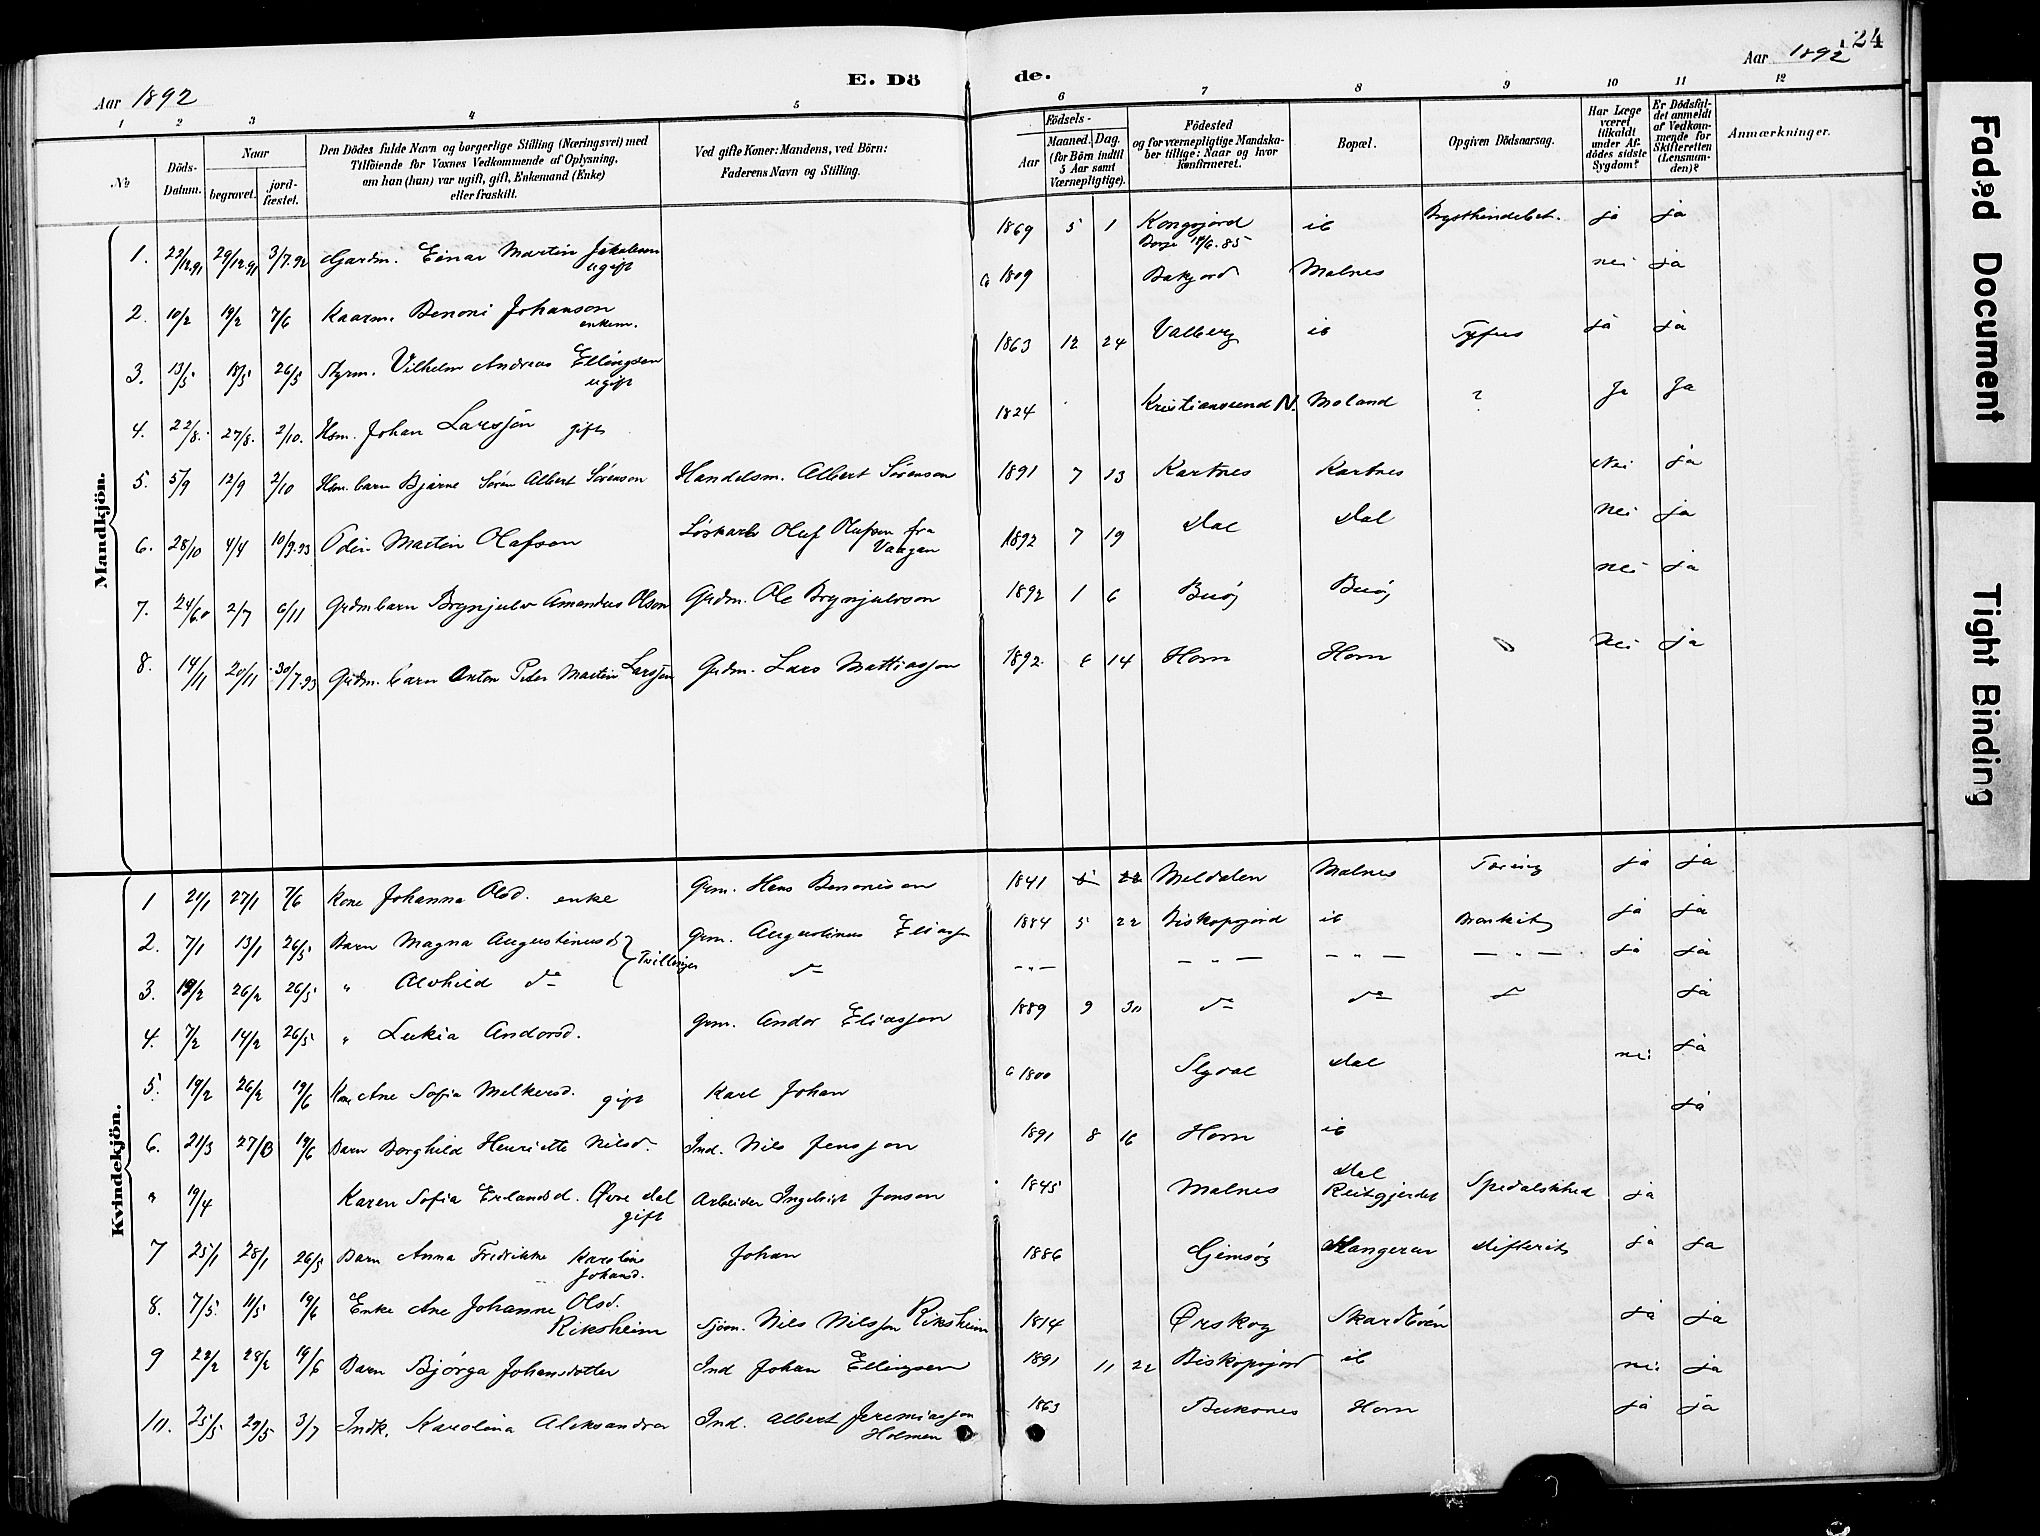 Aar 1892
E. Dö
de.
Aar 1892
24
1 2 3 4 5 6 7 8 9 10 11 12
No
Döds-Datum.
Naar
begravet.
jord-fæstet.
Den Dödes fulde Navn og borgerlige Stilling (Næringsvei) med
Tilföiende for Voxnes Vedkommende af Oplysning,
om han (hun) var ugift, gift, Enkemand (Enke)
eller fraskilt.
Ved gifte Koner: Mandens, ved Börn:
Faderens Navn og Stilling.
Födsels-
Aar
Maaned. Dag.
(for Börn indtil
5 Aar samt
Værnepligtige).
Födested
og for værnepligtige Mandska-
ber tillige: Naar og hvor
konfirmeret.
Bopæl.
Opgiven Dödsaarsag.
Har Læge
været
tilkaldt
under Af-
dödes sidste
Sygdom?
Er Dödsfal-
det anmeldt
af Vedkom-
mende for
Skifteretten
(Lensman-
den)?
Anmærkninger.
Mandkjön.
1. 29/12.91 3/7.92 Gaardm. Einar Martin Jakobsen ugift 1869 5 1 Kongsjord ib Brysthindebet. ja ja
2. 10/2 19/2 7/6 Kaarm. Benoni Johanson enkem. 1809 Bakjord Malnes nei ja
3. 13/5 18/5 26/5 Styrm. Vilhelm Andreas Ellingsen ugift 1863 12 24 Valberg ib Tyfus ja ja
4. 22/8. 27/8. 2/10. Hsm. Johan Larssön gift 1824 Kristiansund N. Moland ? Ja Ja
5. 5/9 12/9 2/10 Hsm. barn Bjarne Sören Albert Sörenson Handelsm. Albert Sörenson 1891 7 13 Kartnes Kartnes Nei ja
6. 28/10 4/4 10/9.93 Odin Martin Olafson Löskarl Oluf Olafson fra Vaagan 1892 7 19 Dal Dal nei ja
7. 2/7 6/11 Grdm barn Brynjulv Amandus Olson Grdm. Ole Brynjulvson 1892 1 6 Buöj Buöj nei ja
8. 14/11 20/11 30/7.93 Grdm. barn Anton Peder Martin Larssen Grdm. Lars Mattiasson 1892. 6 14 Horn Horn Nei ja
Kvindekjön.
1 21/1 27/1 7/6 Kone Johanna Olsd. enke Grm. Hans Benonison 1841 Meldalen Malnes Tæring ja ja
2. 7/1 13/1 26/5 Barn Magna Augustinusd. Tvillinger Grm. Augustinus Eliassn 1884 5 22 Biskopsjord ib Bronkit ja ja
3. 19/2 26/2 26/5 " Alvhild do do - " - - " - - " - - " - ja ja
4. 7/2 14/2 26/5 " Lukia Andorsd. Grm. Andor Eliasson 1889 9 30 do do do ja
5. 19/2 26/2 19/6 Kone Ane Sofia Melkersd. gift Karl Johan 1800 Slydal Dal nei ja
6. 21/3 27/3 19/6 Barn Borghild Henriette Nilsd. Ind. Nils Jensson 1891 8 16 Horn ib ja
" 19/4 Karen Sofia Erlandsd. Øvre Dal gift Arbeider Ingebrigt Jonson 1845 Malnes Dal Reitgjerdet Spedalskhed ja
7 25/1 28/1 26/5 Barn Anna Fredrikke Karoline Johansd. Johan 1886 Gimsöy Difterit ja ja
8. 7/5. 11/5 19/6 Enke Ane Johanne Olsd. Riksheim Sjöm. Nils Nilsson Riksheim 1814 Ørskog ja ja
9 22/2 28/2 19/6 Barn Björga Johansdatter Ind Johan Ellingsen 1891 11 22 Biskopsjord ib nei ja
10. 25/5 29/5 3/7 Indk. Karolina Aleksandra Ind. Albert Jeremiasson Holmen 1863 Buksnes Horn ja ja
Faded Document
Tight Binding